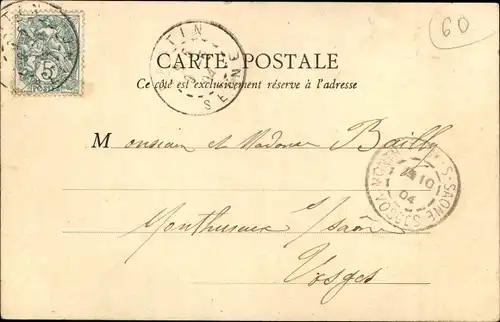 60
5
PANTIN
SEINE
04
CARTE POSTALE
Ce côté est exclusivement réservé à l'adresse
Monsieur et Madame Bailly
MONTHUREUX-S-SAONE
10
04
VOSGES
Monthureux s/Saône
Vosges